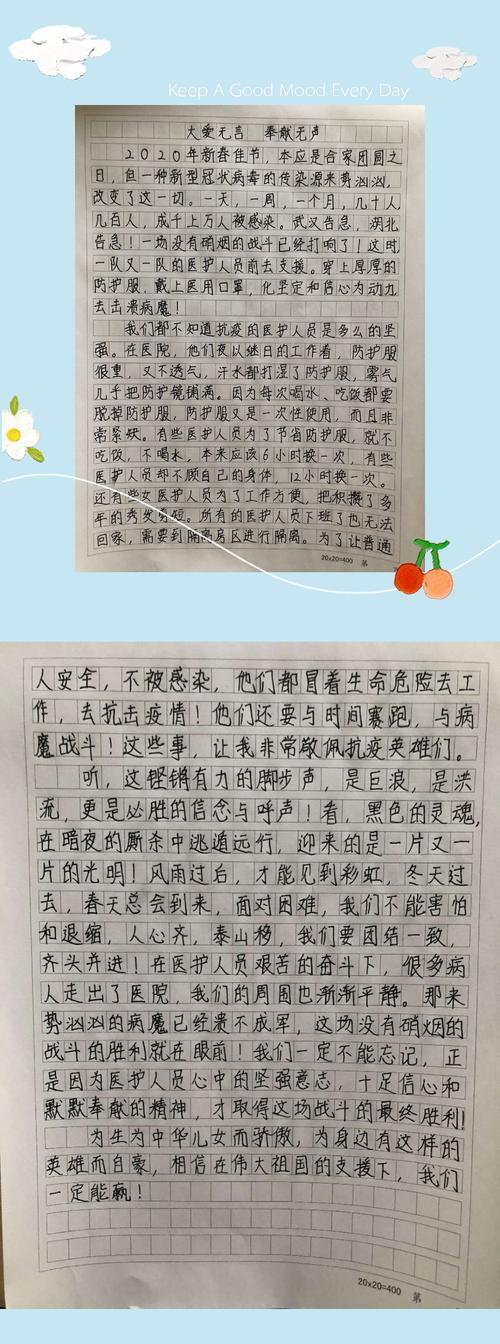 Keep A Good Mood Every Day
大爱无言 奉献无声
2020年新春佳节，本应是合家团圆之
日，但一种新型冠状病毒的传染源来势汹汹，
改变了这一切。一天，一周，一个月，几十人，
几百人，成千上万人被感染。武汉告急，湖北
告急！一场没有硝烟的战斗已经打响了！这时
一队又一队的医护人员前去支援。穿上厚厚的
防护服，戴上医用口罩，化坚定和信心为动力
去击溃病魔！
我们都不知道抗疫的医护人员是多么的坚
强。在医院，他们夜以继日的工作着，防护服
很重，又不透气，汗水都打湿了防护服，雾气
几乎把防护镜铺满。因为每次喝水、吃饭都要
脱掉防护服，防护服又是一次性使用，而且非
常紧缺。有些医护人员为了节省防护服，就不
吃饭，不喝水，本来应该6小时换一次，有些
医护人员却不顾自己的身体，12小时换一次。
还有些女医护人员为了工作方便，把积攒了多
年的秀发剪短。所有的医护人员下班了也无法
回家，需要到隔离房区进行隔离。为了让普通
20×20=400 第
人安全，不被感染，他们都冒着生命危险去工
作，去抗击疫情！他们还要与时间赛跑，与病
魔战斗！这些事，让我非常敬佩抗疫英雄们。
听，这铿锵有力的脚步声，是巨浪，是洪
流，更是必胜的信念与呼声！看，黑色的灵魂，
在暗夜的厮杀中逃遁远行，迎来的是一片又一
片的光明！风雨过后，才能见到彩虹，冬天过
去，春天总会到来，面对困难，我们不能害怕
和退缩，人心齐，泰山移，我们要团结一致，
齐头并进！在医护人员艰苦的奋斗下，很多病
人走出了医院，我们的周围也渐渐平静。那来
势汹汹的病魔已经溃不成军，这场没有硝烟的
战斗的胜利就在眼前！我们一定不能忘记，正
是因为医护人员心中的坚强意志，十足信心和
默默奉献的精神，才取得这场战斗的最终胜利！
为生为中华儿女而骄傲，为身边有这样的
英雄而自豪，相信在伟大祖国的支援下，我们
一定能赢！
20×20=400 第